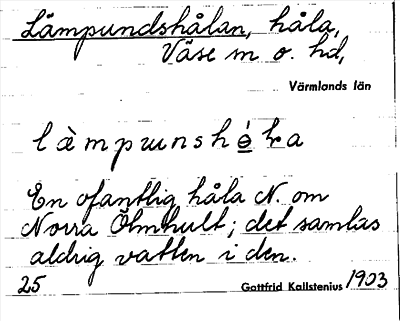 Lämpundshålan, håla,
Väse sn o. hd,
Värmlands län
l æ̀ m p ɯ n s h ó̲ lr a
En ofantlig håla N. om
Norra Ölmhult; det samlas
aldrig vatten i den.
25 Gottfrid Kallstenius 1903